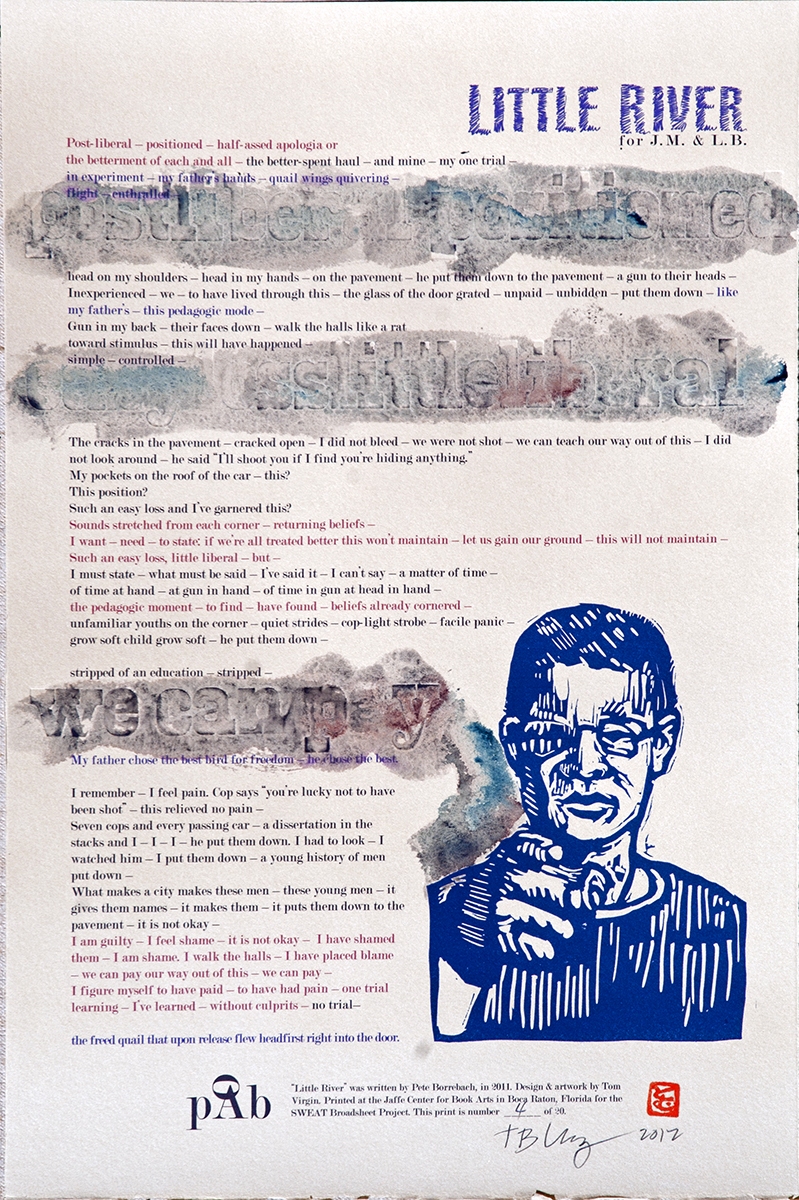 LITTLE RIVER
for J.M. & L.B.
Post-liberal – positioned – half-assed apologia or
the betterment of each and all – the better-spent haul – and mine – my one trial –
in experiment – my father's hands – quail wings quivering –
flight – enthralled
positioned
head on my shoulders – head in my hands – on the pavement – he put them down to the pavement – a gun to their heads –
Inexperienced – we – to have lived through this – the glass of the door grated – unpaid – unbidden – put them down – like
my father's – this pedagogic mode –
Gun in my back – their faces down – walk the halls like a rat
toward stimulus – this will have happened –
simple – controlled –
losslittleliberal
The cracks in the pavement – cracked open – I did not bleed – we were not shot – we can teach our way out of this – I did
not look around – he said "I'll shoot you if I find you're hiding anything."
My pockets on the roof of the car – this?
This position?
Such an easy loss and I've garnered this?
Sounds stretched from each corner – returning beliefs –
I want – need – to state: if we're all treated better this won't maintain – let us gain our ground – this will not maintain –
Such an easy loss, little liberal – but –
I must state – what must be said – I've said it – I can't say – a matter of time –
of time at hand – at gun in hand – of time in gun at head in hand –
the pedagogic moment – to find – have found – beliefs already cornered –
unfamiliar youths on the corner – quiet strides – cop-light strobe – facile panic –
grow soft child grow soft – he put them down –
stripped of an education – stripped –
we can pay
My father chose the best bird for freedom – he chose the best.
I remember – I feel pain. Cop says "you're lucky not to have
been shot" – this relieved no pain –
Seven cops and every passing car – a dissertation in the
stacks and I – I – I – he put them down. I had to look – I
watched him – I put them down – a young history of men
put down –
What makes a city makes these men – these young men – it
gives them names – it makes them – it puts them down to the
pavement – it is not okay –
I am guilty – I feel shame – it is not okay – I have shamed
them – I am shame. I walk the halls – I have placed blame
– we can pay our way out of this – we can pay –
I figure myself to have paid – to have had pain – one trial
learning – I've learned – without culprits – no trial–
the freed quail that upon release flew headfirst right into the door.
pAb
"Little River" was written by Pete Borrebach, in 2011. Design & artwork by Tom
Virgin. Printed at the Jaffe Center for Book Arts in Boca Raton, Florida for the
SWEAT Broadsheet Project. This print is number 4 of 20.
2012